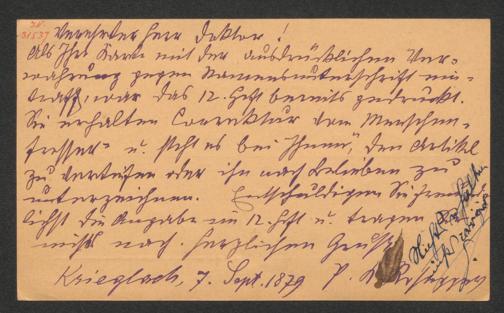 I.N.
31537
Verehrter Herr Doktor!
Als Ihre Karte mit der ausdrücklichen Ver-
wahrung gegen Namensunterschrift ein-
traf, war das 12. Heft bereits gedruckt.
Sie erhalten Correktur vom Menschen-
fresser u. steht es bei Ihnen, den Artikel
zu oder ihn nach Belieben zu
unterzeichnen. Entschuldigen Sie freund-
lichst die Angabe im 12. Heft u. tragen
nichts nach. Herzlichen Gruß
Krieglach, 7. Sept. 1879 P. K. Rosegger